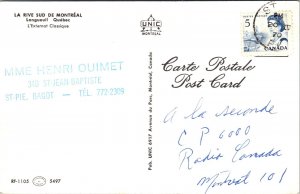 LA RIVE SUD DE MONTRÉAL
Longueuil Québec
L'Externat Classique
UNIC
MONTREAL
ST
5
CANADA
MME HENRI OUIMET
ST JEAN BAPTISTE
ST PIE, BAGOT - TÉL. 772-2309
Carte Postale
Post Card
Pub. UNIC 6917 Avenue Christophe Colomb, Montréal
A la seconde
C P 6000
Radio Canada
Montréal 101
RF-1105
5497